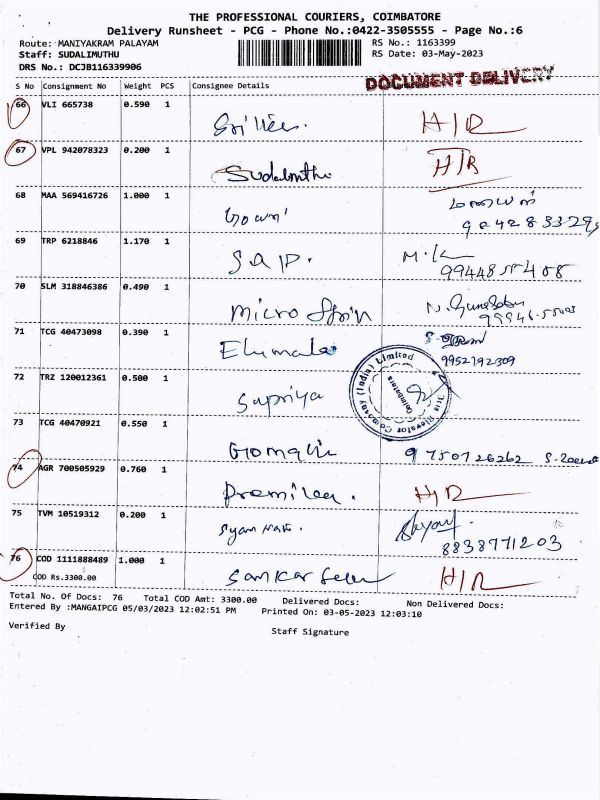 THE PROFESSIONAL COURIERS, COIMBATORE
Delivery Runsheet - PCG - Phone No.:0422-3505555 - Page No.:6
Route: MANIYAKRAM PALAYAM RS No.: 1163399
Staff: SUDALIMUTHU RS Date: 03-May-2023
DRS No.: DCJB116339906
DOCUMENT DELIVERY
S No Consignment No Weight PCS Consignee Details
66 VLI 665738 0.590 1
H/R
67 VPL 942078323 0.200 1
Sudalimuthu H/R
68 MAA 569416726 1.000 1
69 TRP 6218846 1.170 1
S A P. M.K
70 SLM 318846386 0.490 1
Micro
71 TCG 40473098 0.390 1
Elumalai 9952192309
72 TRZ 120012361 0.500 1
Supriya
Elevator Company (India) Limited
Coimbatore
73 TCG 40470921 0.550 1
9750726262
74 AGR 700505929 0.760 1
Premila. H/R
75 TVM 10519312 0.200 1
8838771203
76 COD 1111888489 1.000 1
COD Rs.3300.00
Sankar H/R
Total No. Of Docs: 76 Total COD Amt: 3300.00 Delivered Docs: Non Delivered Docs:
Entered By :MANGAIPCG 05/03/2023 12:02:51 PM Printed On: 03-05-2023 12:03:10
Verified By Staff Signature